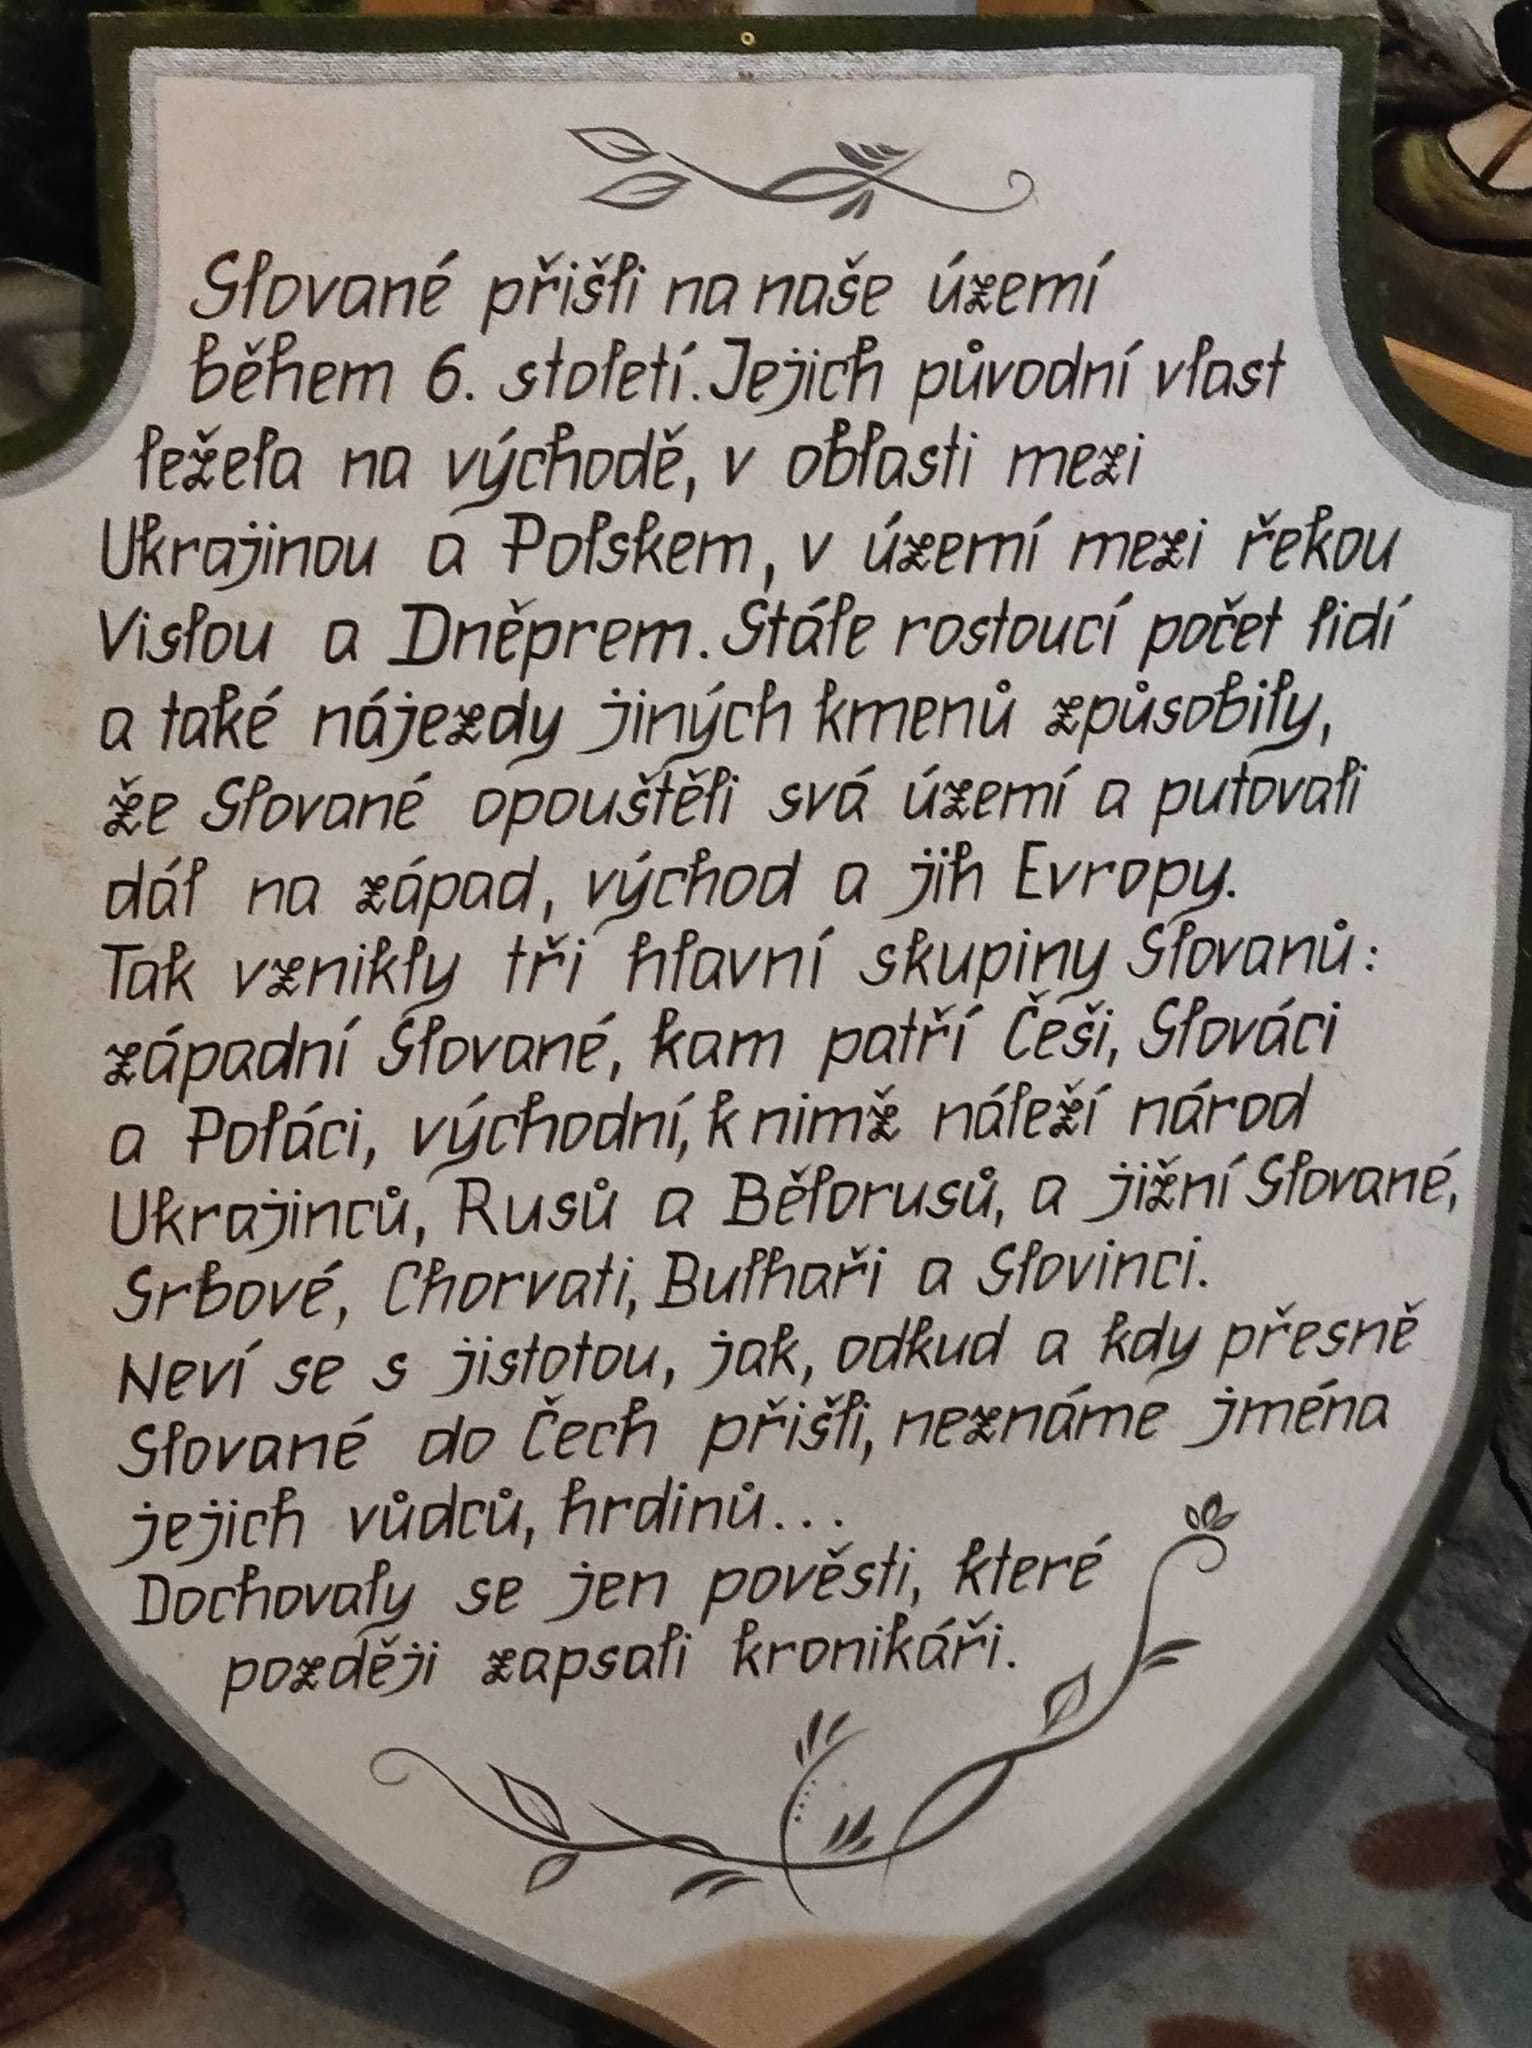 Slované přišli na naše území
během 6. století. Jejich původní vlast
ležela na východě, v oblasti mezi
Ukrajinou a Polskem, v území mezi řekou
Vislou a Dněprem. Stále rostoucí počet lidí
a také nájezdy jiných kmenů způsobily,
že Slované opouštěli svá území a putovali
dál na západ, východ a jih Evropy.
Tak vznikly tři hlavní skupiny Slovanů:
západní Slované, kam patří Češi, Slováci
a Poláci, východní, k nimž náleží národ
Ukrajinců, Rusů a Bělorusů, a jižní Slované,
Srbové, Chorvati, Bulhaři a Slovinci.
Neví se s jistotou, jak, odkud a kdy přesně
Slované do Čech přišli, neznáme jména
jejich vůdců, hrdinů...
Dochovaly se jen pověsti, které
později zapsali kronikáři.